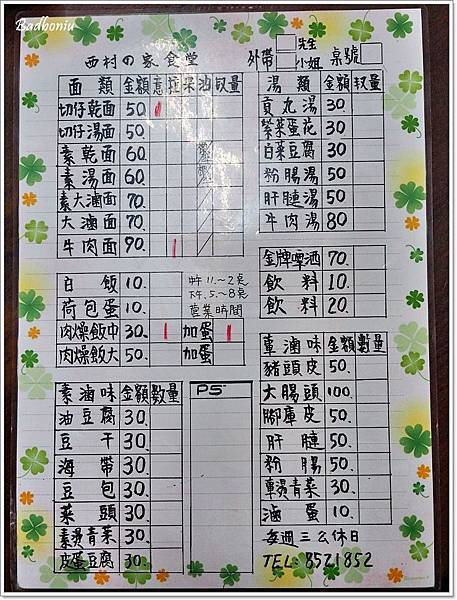 Badboniu
西村の家食堂
外帶 先生 小姐 桌號
面類 金額 蔥 拉 米 油 數量
切仔乾面 50.
切仔湯面 50.
素乾面 60.
素湯面 60.
素大滷面 70.
大滷面 70.
牛肉面 90.
湯類 金額 數量
貢丸湯 30
紫菜蛋花 30.
白菜豆腐 30
粉腸湯 50
肝腱湯 50
牛肉湯 80
金牌啤酒 70.
飲料 10.
飲料 20.
白飯 10.
荷包蛋 10.
肉燥飯中 30. 加蛋
肉燥飯大 50. 加蛋
中午11.~2點
下午.5.~8點
營業時間
素滷味 金額 數量
油豆腐 30.
豆干 30.
海帶 30.
豆包 30.
菜頭 30.
素燙青菜 30.
皮蛋豆腐 30.
PS
葷滷味 金額 數量
豬頭皮 50.
大腸頭 100.
腳庫皮 50.
肝腱 50.
粉腸 50.
葷燙青菜 30.
滷蛋 10.
每週三公休日
TEL: 8521852